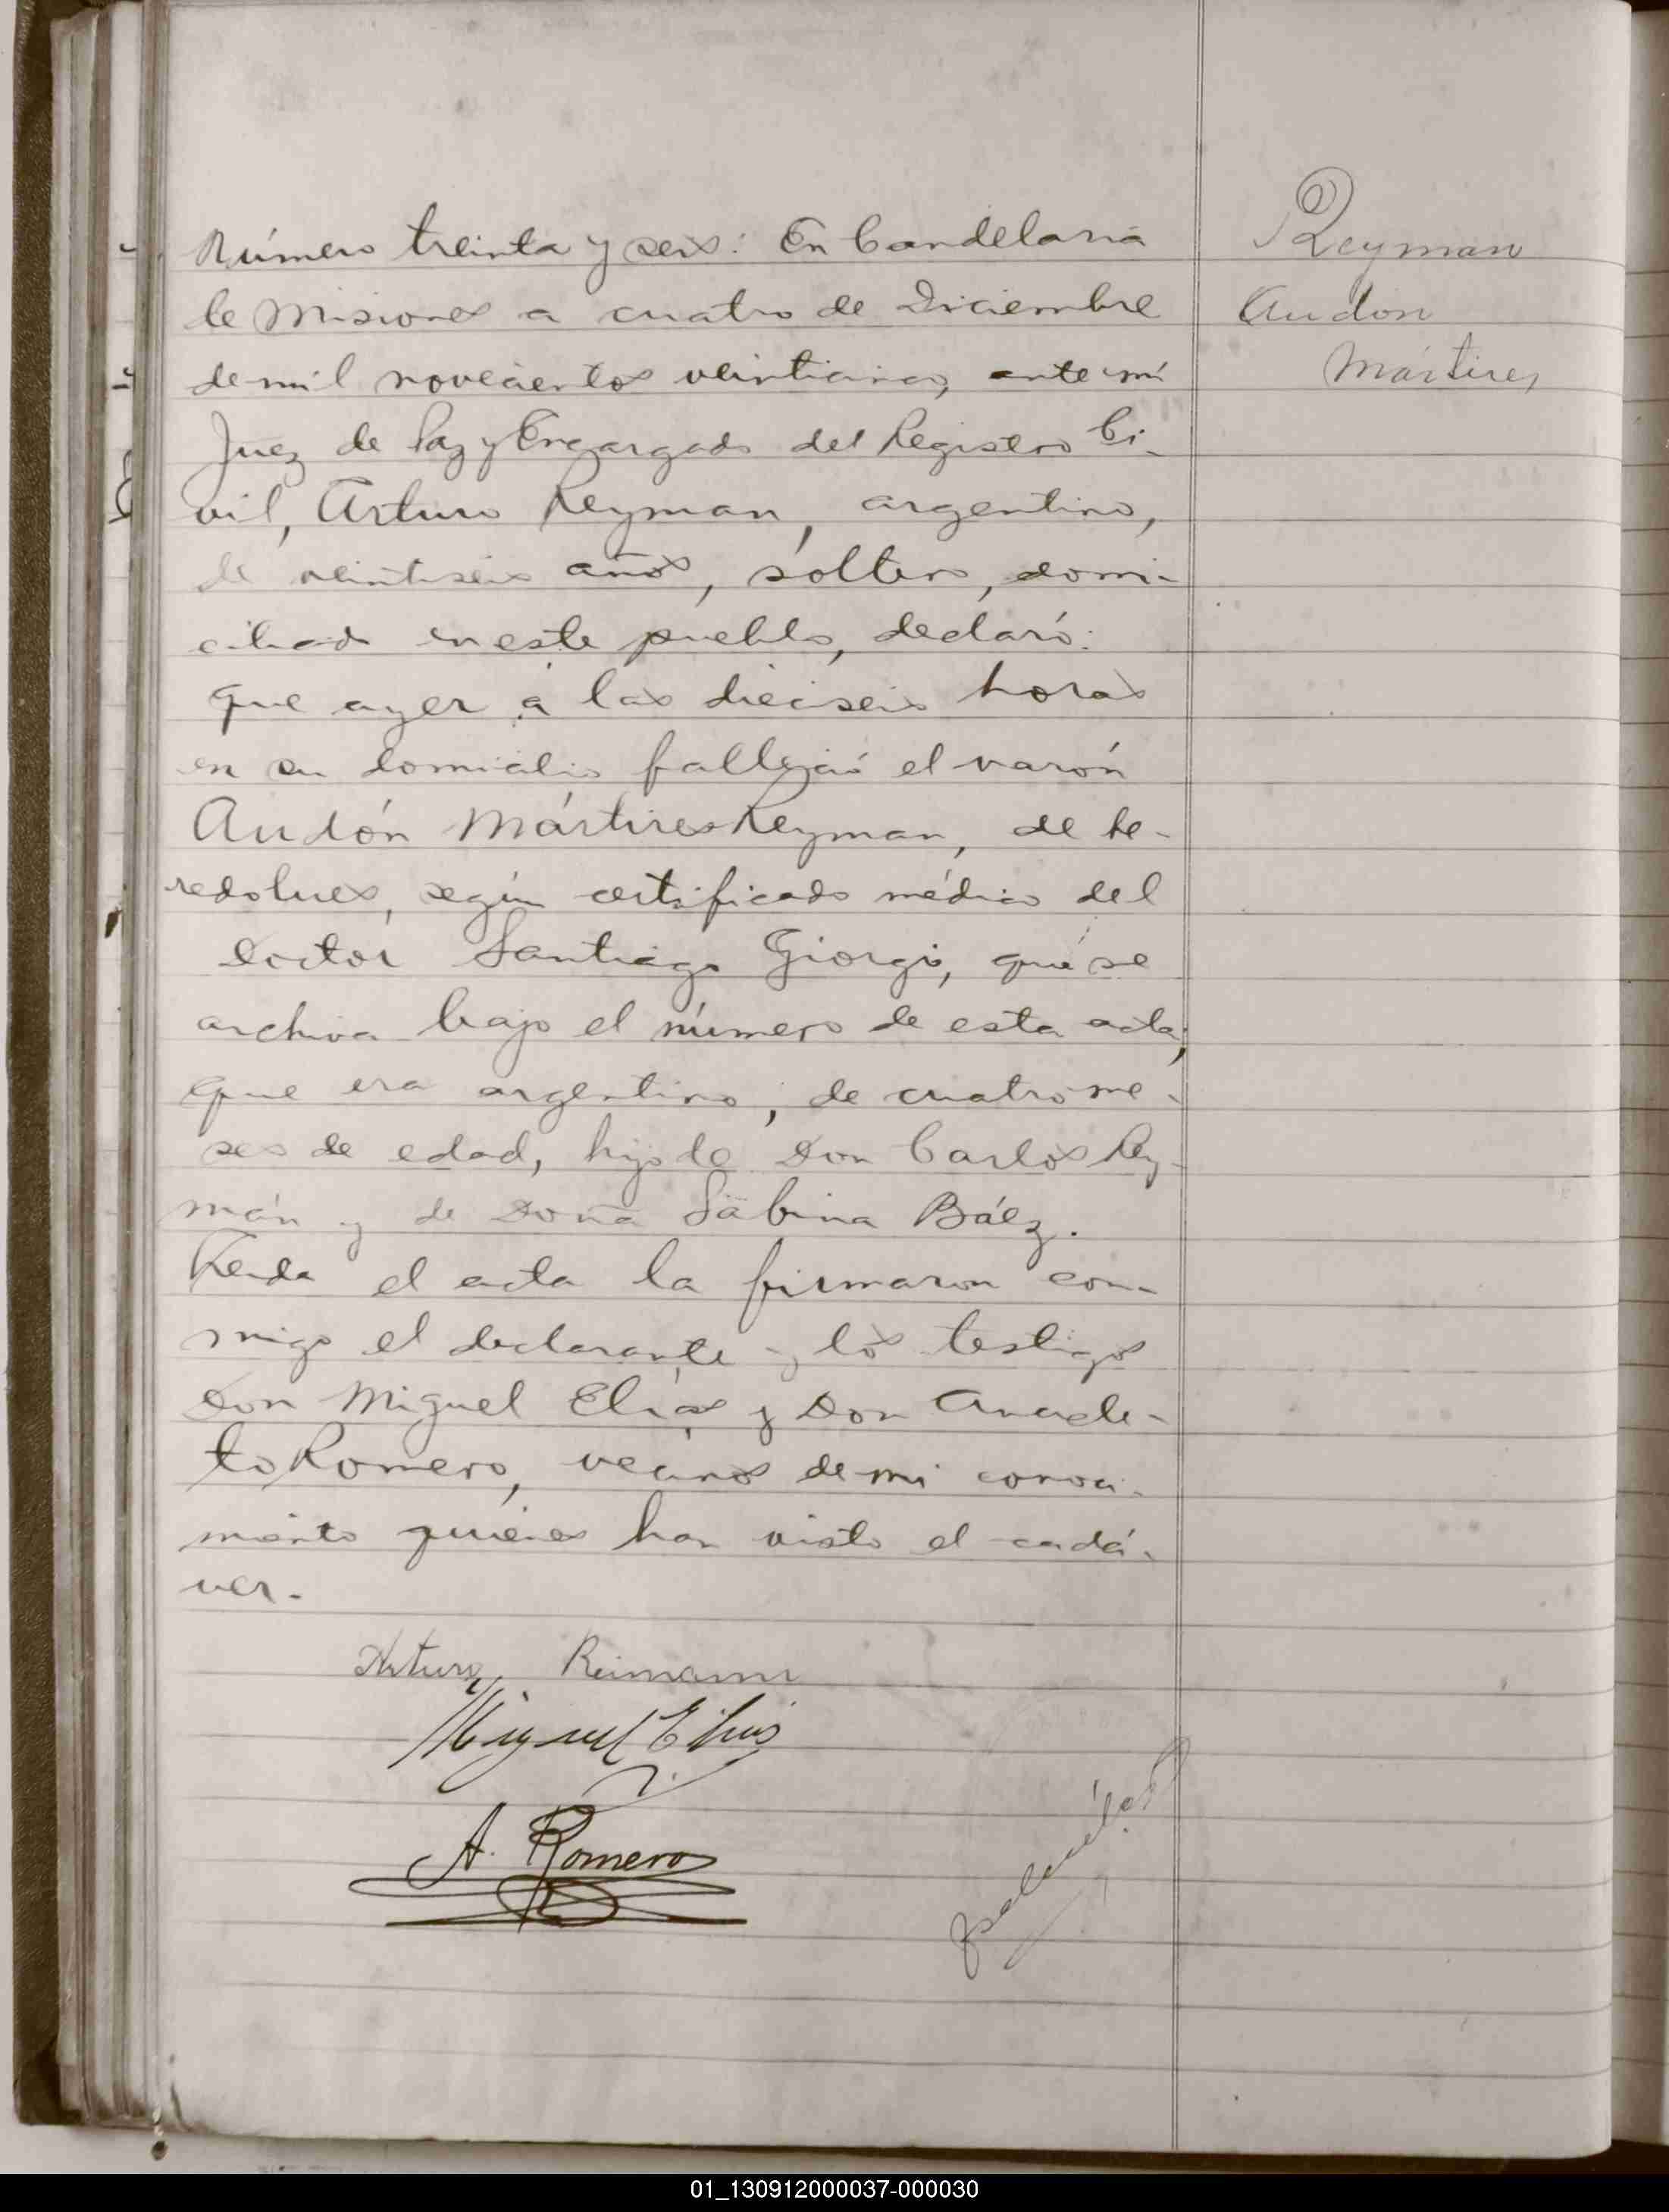 Número treinta y seis: En Candelaria
Reyman
de Misiones a cuatro de Diciembre
Audón
de mil novecientos veinticinco, ante mí
Mártires
Juez de Paz y Encargado del Registro Ci-
vil, Arturo Reyman, argentino,
de veintiseis años, soltero, domi-
ciliado en este pueblo, declaró:
que ayer a las dieciseis horas
en su domicilio falleció el varón
Audón Mártires Reyman, de he-
redolues, según certificado médico del
Doctor Santiago Giorgi, que se
archiva bajo el número de esta acta;
que era argentino, de cuatro me-
ses de edad, hijo de Don Carlos Rey-
mán y de Doña Sabina Báez.
Leida el acta la firmaron con-
migo el declarante y los testigos
Don Miguel Elías y Don Anacle-
to Romero, vecinos de mi conoci-
miento quienes han visto el cadá-
ver.
Arturo Reimann
Miguel Elias
A. Romero
01_130912000037-000030